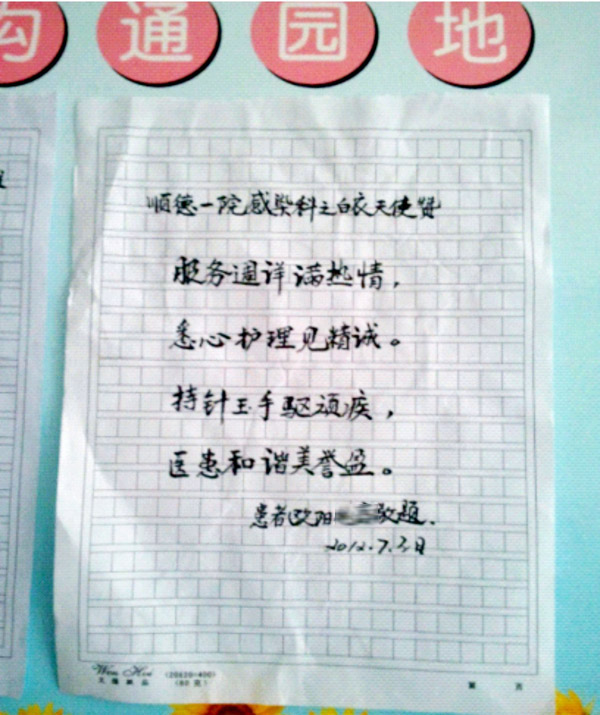 沟通园地
顺德一院感染科之白衣天使赞
服务週详满热情，
悉心护理见精诚。
持针玉手驱顽疾，
医患和谐美誉盈。
患者欧阳 敬题.
2012.7.3日
Wen Hui (20X20=400)
第 页